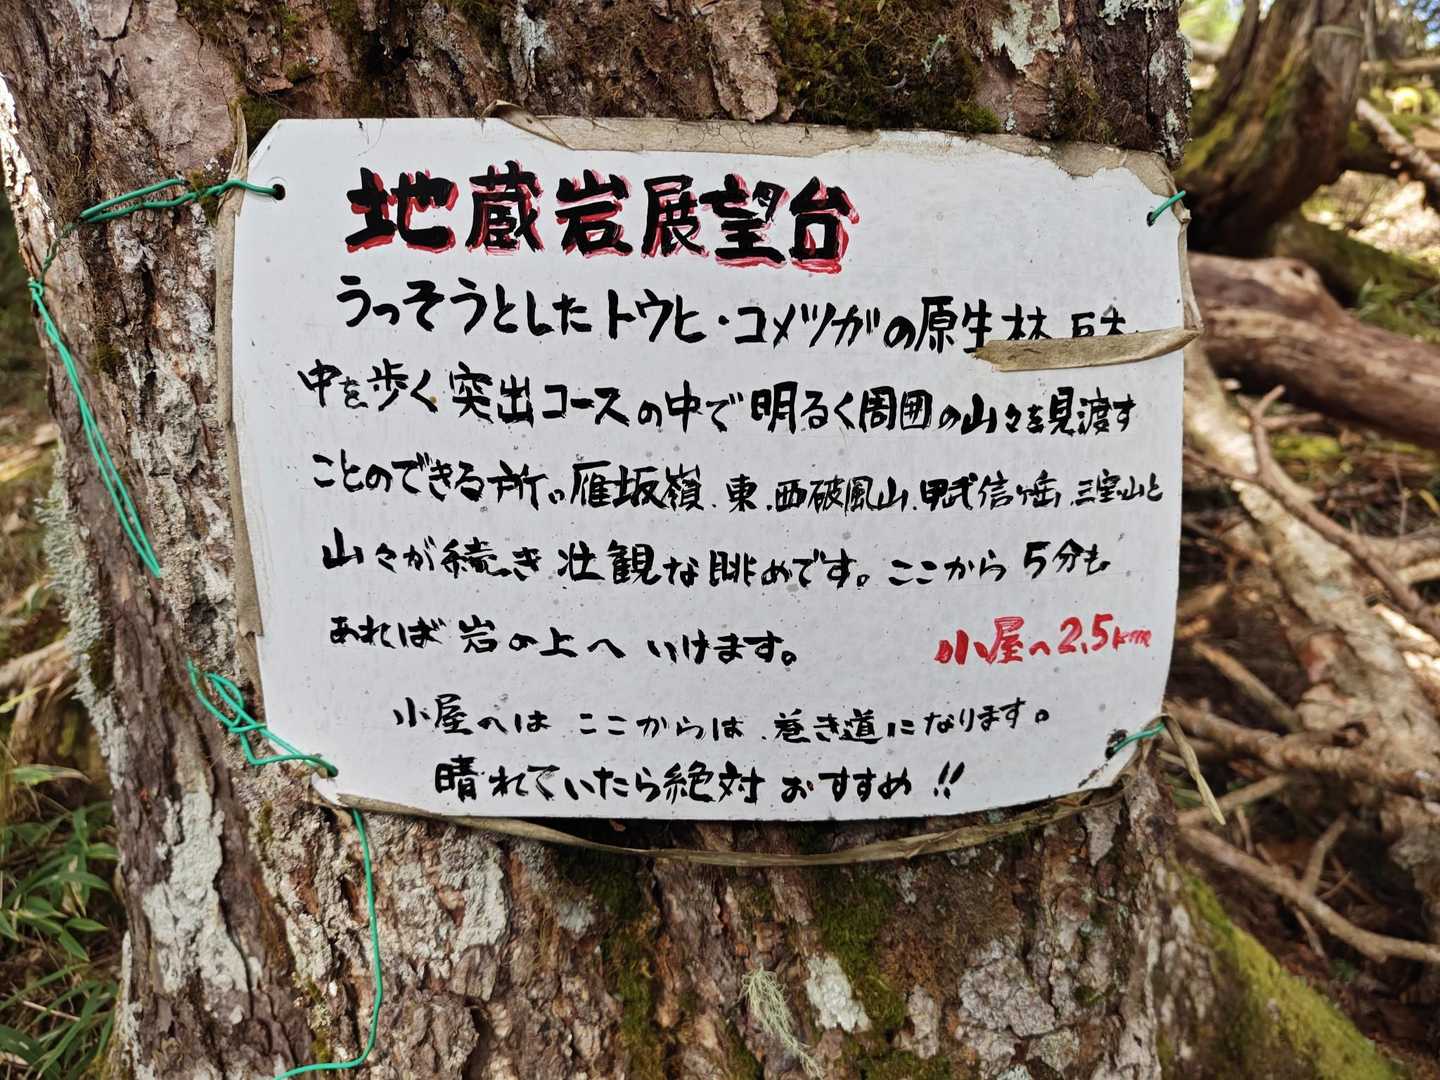 地蔵岩展望台
うっそうとしたトウヒ・コメツガの原生林
中を歩く突出コースの中で明るく周囲の山々を見渡す
ことのできる所。雁坂嶺.東.西破風山.甲武信ヶ岳.三宝山と
山々が続き壮観な眺めです。ここから5分も
あれば岩の上へいけます。
小屋へ2.5km
小屋へはここからは.巻き道になります。
晴れていたら絶対おすすめ!!